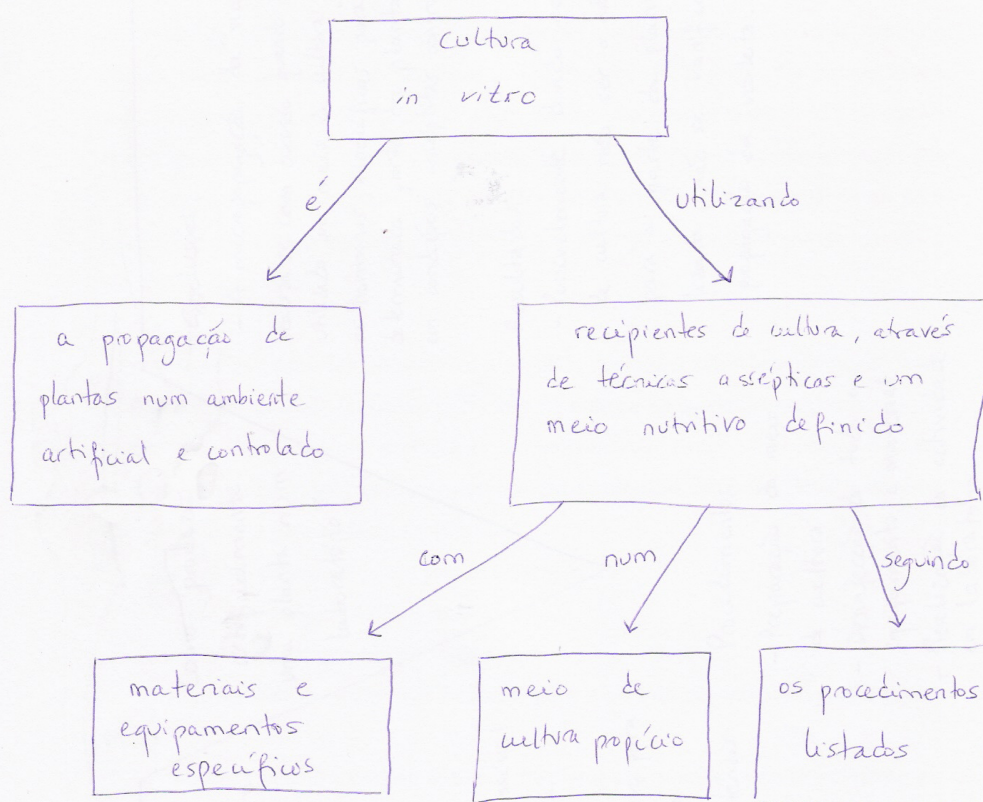 cultura
in vitro
é
utilizando
a propagação de
plantas num ambiente
artificial e controlado
recipientes de cultura, através
de técnicas assépticas e um
meio nutritivo definido
com
num
seguindo
materiais e
equipamentos
específicos
meio de
cultura propício
os procedimentos
listados